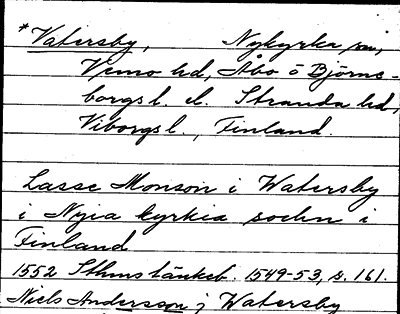 *Vatersby, Nykyrka sn,
Vemo hd, Åbo o Björne-
borgs l. el. Stranda hd,
Viborgs l., Finland.
Lasse Monson i Watersby
i Nyia kyrkia sochn i
Finland
1552 Sthms tänkeb. 1549-53, s. 161.
Niels Andersson i Watersby